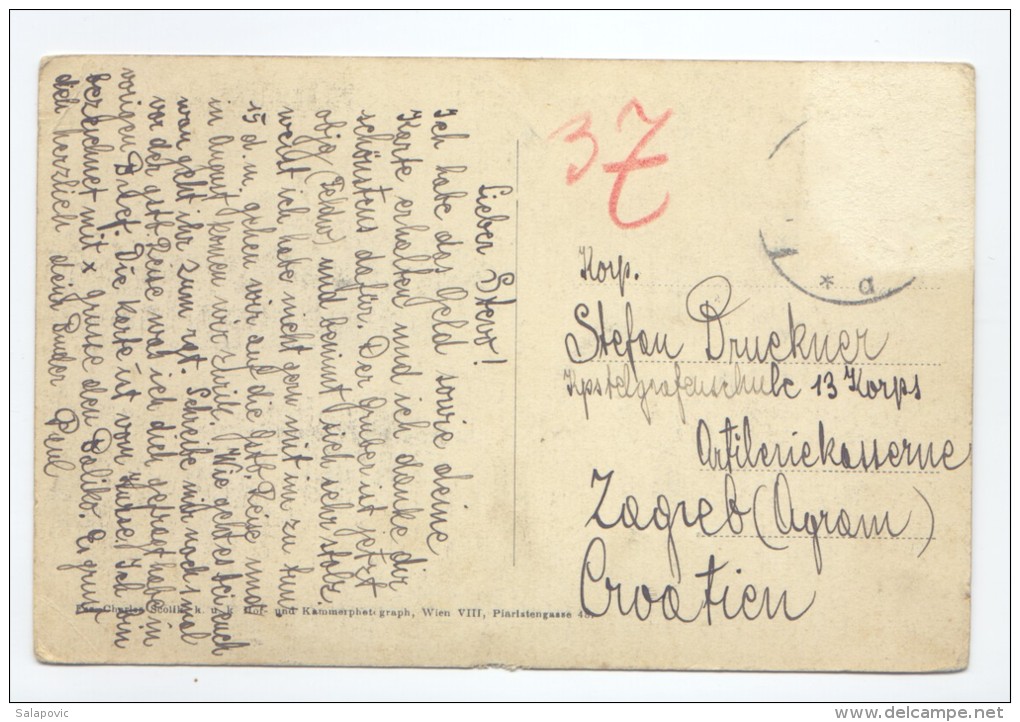 Lieber Stevo!
Ich habe das Geld sowie deine
Karte erhalten und ich danke dir
schönstens dafür. Der Gruber ist jetzt
objg (Feldw) und benimt sich sehr stolz,
weißt ich habe nicht gern mit im zu tun
15 d. m. gehen wir auf die Gstb. Reise und
in August komen wir zurük. Wie geht es bei euch
wan geht ihr zum rgt. Schreibe mir noch 1 mal
vor der gstb Reise was ich dich gefragt habe in
vorigen Brief. Die Karte ist vom Kurse. Ich bin
bezeichnet mit x grüse den Es grüst
dich herzlich dein Bruder
Paul
37
Korp.
Stefan Druckner
Kpstelgrafenschule 13 Korps
Artileriekasserne
Zagreb (Agram)
Croatien
* a
Phot. Charles Scolik k. u. k. Hof- und Kammerphotograph, Wien VIII, Piaristengasse 48.
Salapovic
http://www.delcampe.net